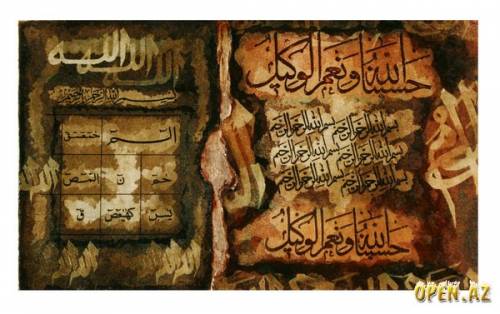 الله الله الله
بسم الله الرحمن الرحيم
الم حمعسق
حم ن المص
يس كهيعص ق
حسبنا الله ونعم الوكيل
بسم الله الرحمن الرحيم بسم الله الرحمن الرحيم
بسم الله الرحمن الرحيم بسم الله الرحمن الرحيم
بسم الله الرحمن الرحيم بسم الله الرحمن الرحيم
بسم الله الرحمن الرحيم بسم الله الرحمن الرحيم
حسبنا الله ونعم الوكيل
OPEN.AZ